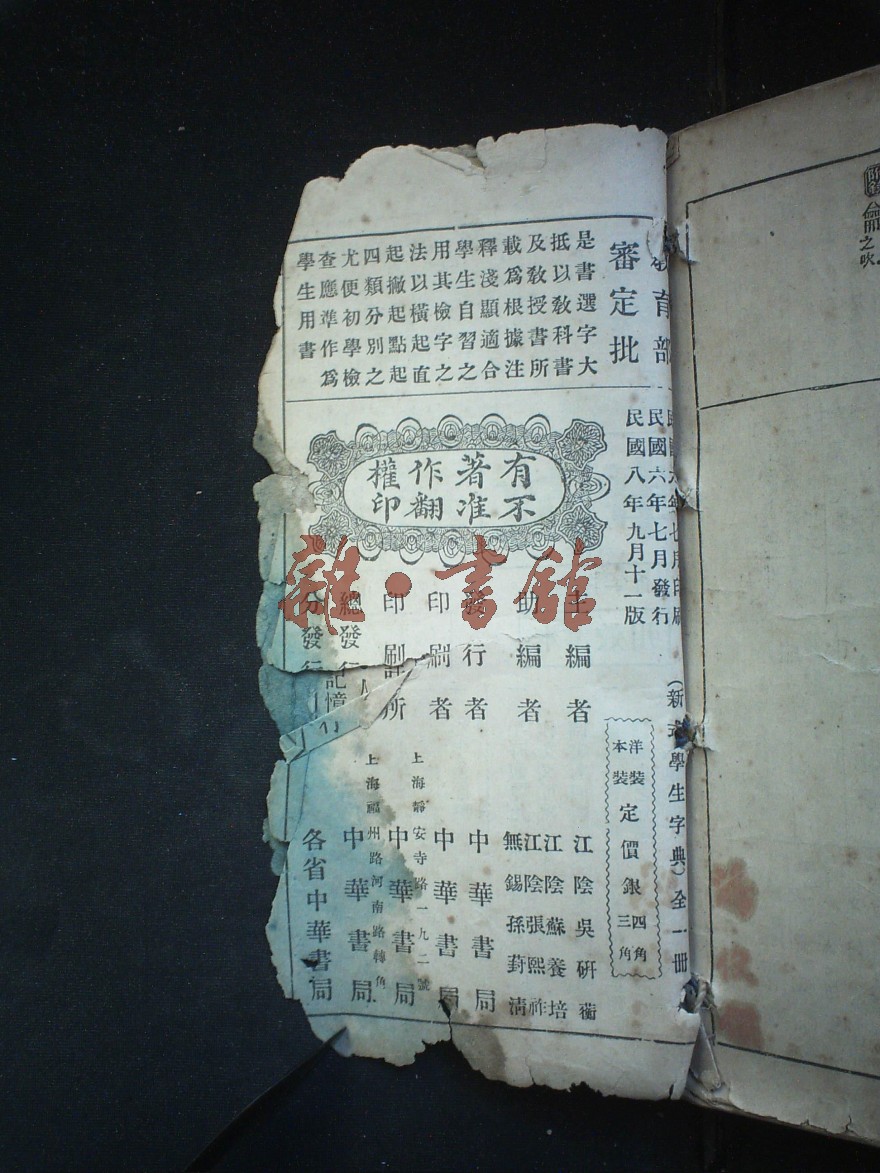 教育部
審定批
是書選字大
抵以敎科書
及敎授書所
載爲根據注
釋淺顯適合
學生自習之
用其檢字之
法以橫起直
起撇起點起
四類分別之
尤便初學檢
查應準作爲
學生用書
民國六年七月印刷
民國六年七月發行
民國八年九月十一版
有著作權
不准翻印
(新式學生字典)全一冊
洋裝
本裝
定價銀
四角
三角
主編者
江陰吳研蘅
助編者
江陰蘇養培
江陰張熙祚
無錫孫葑淸
發行者
中華書局
印刷者
中華書局
上海靜安寺路一九二號
印刷所
中華書局
上海福州路河南路轉角
總發行
中華書局
分發行
各省中華書局
記憶
雜·書館
之吹